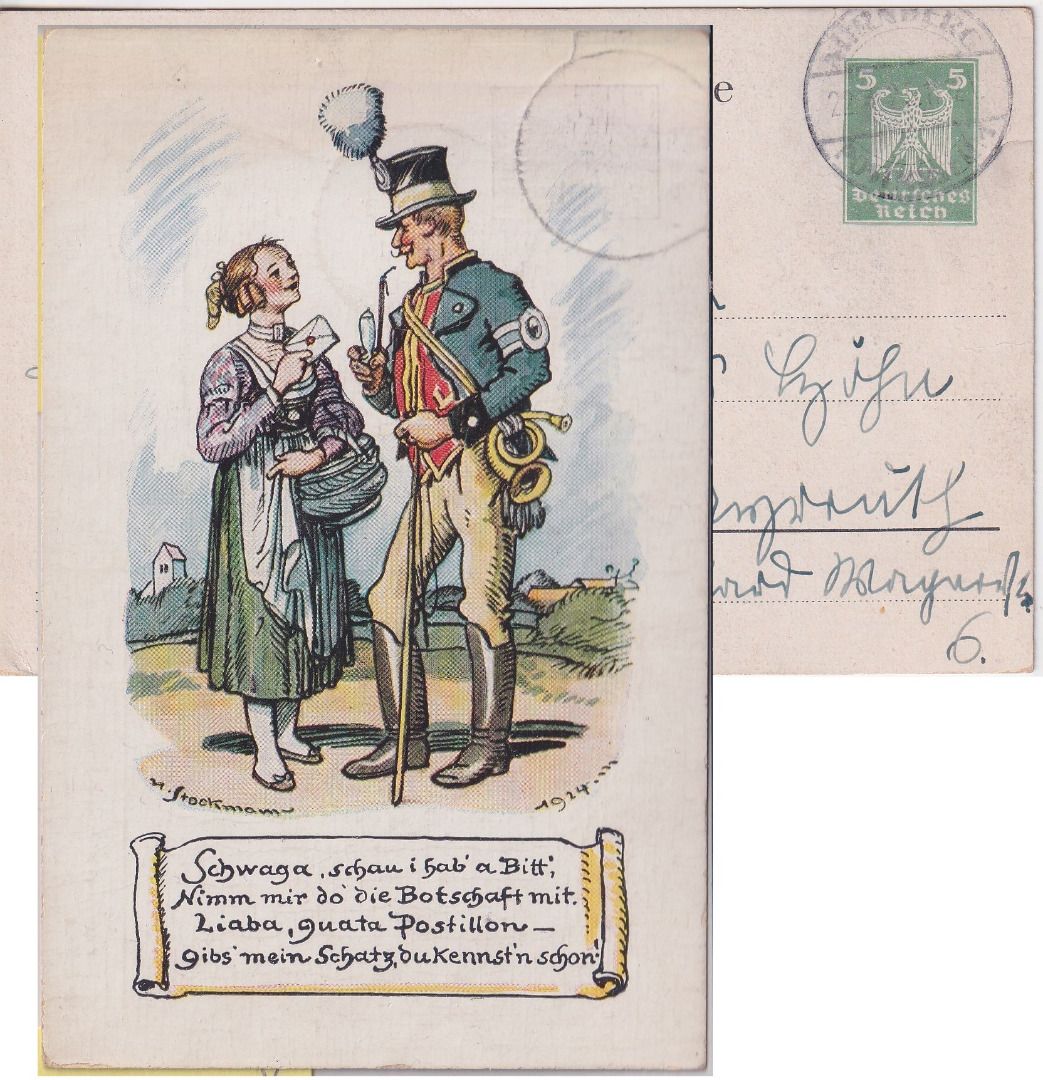 H. Stockmann
1924.
Schwaga, schau i hab' a Bitt',
Nimm mir do' die Botschaft mit.
Liaba, guata Postillon—
gibs' mein Schatz, du kennst'n schon!
e
NÜRNBERG
2
5 5
Deutsches
Reich
ayreuth
hard Wagnerstr.
6.